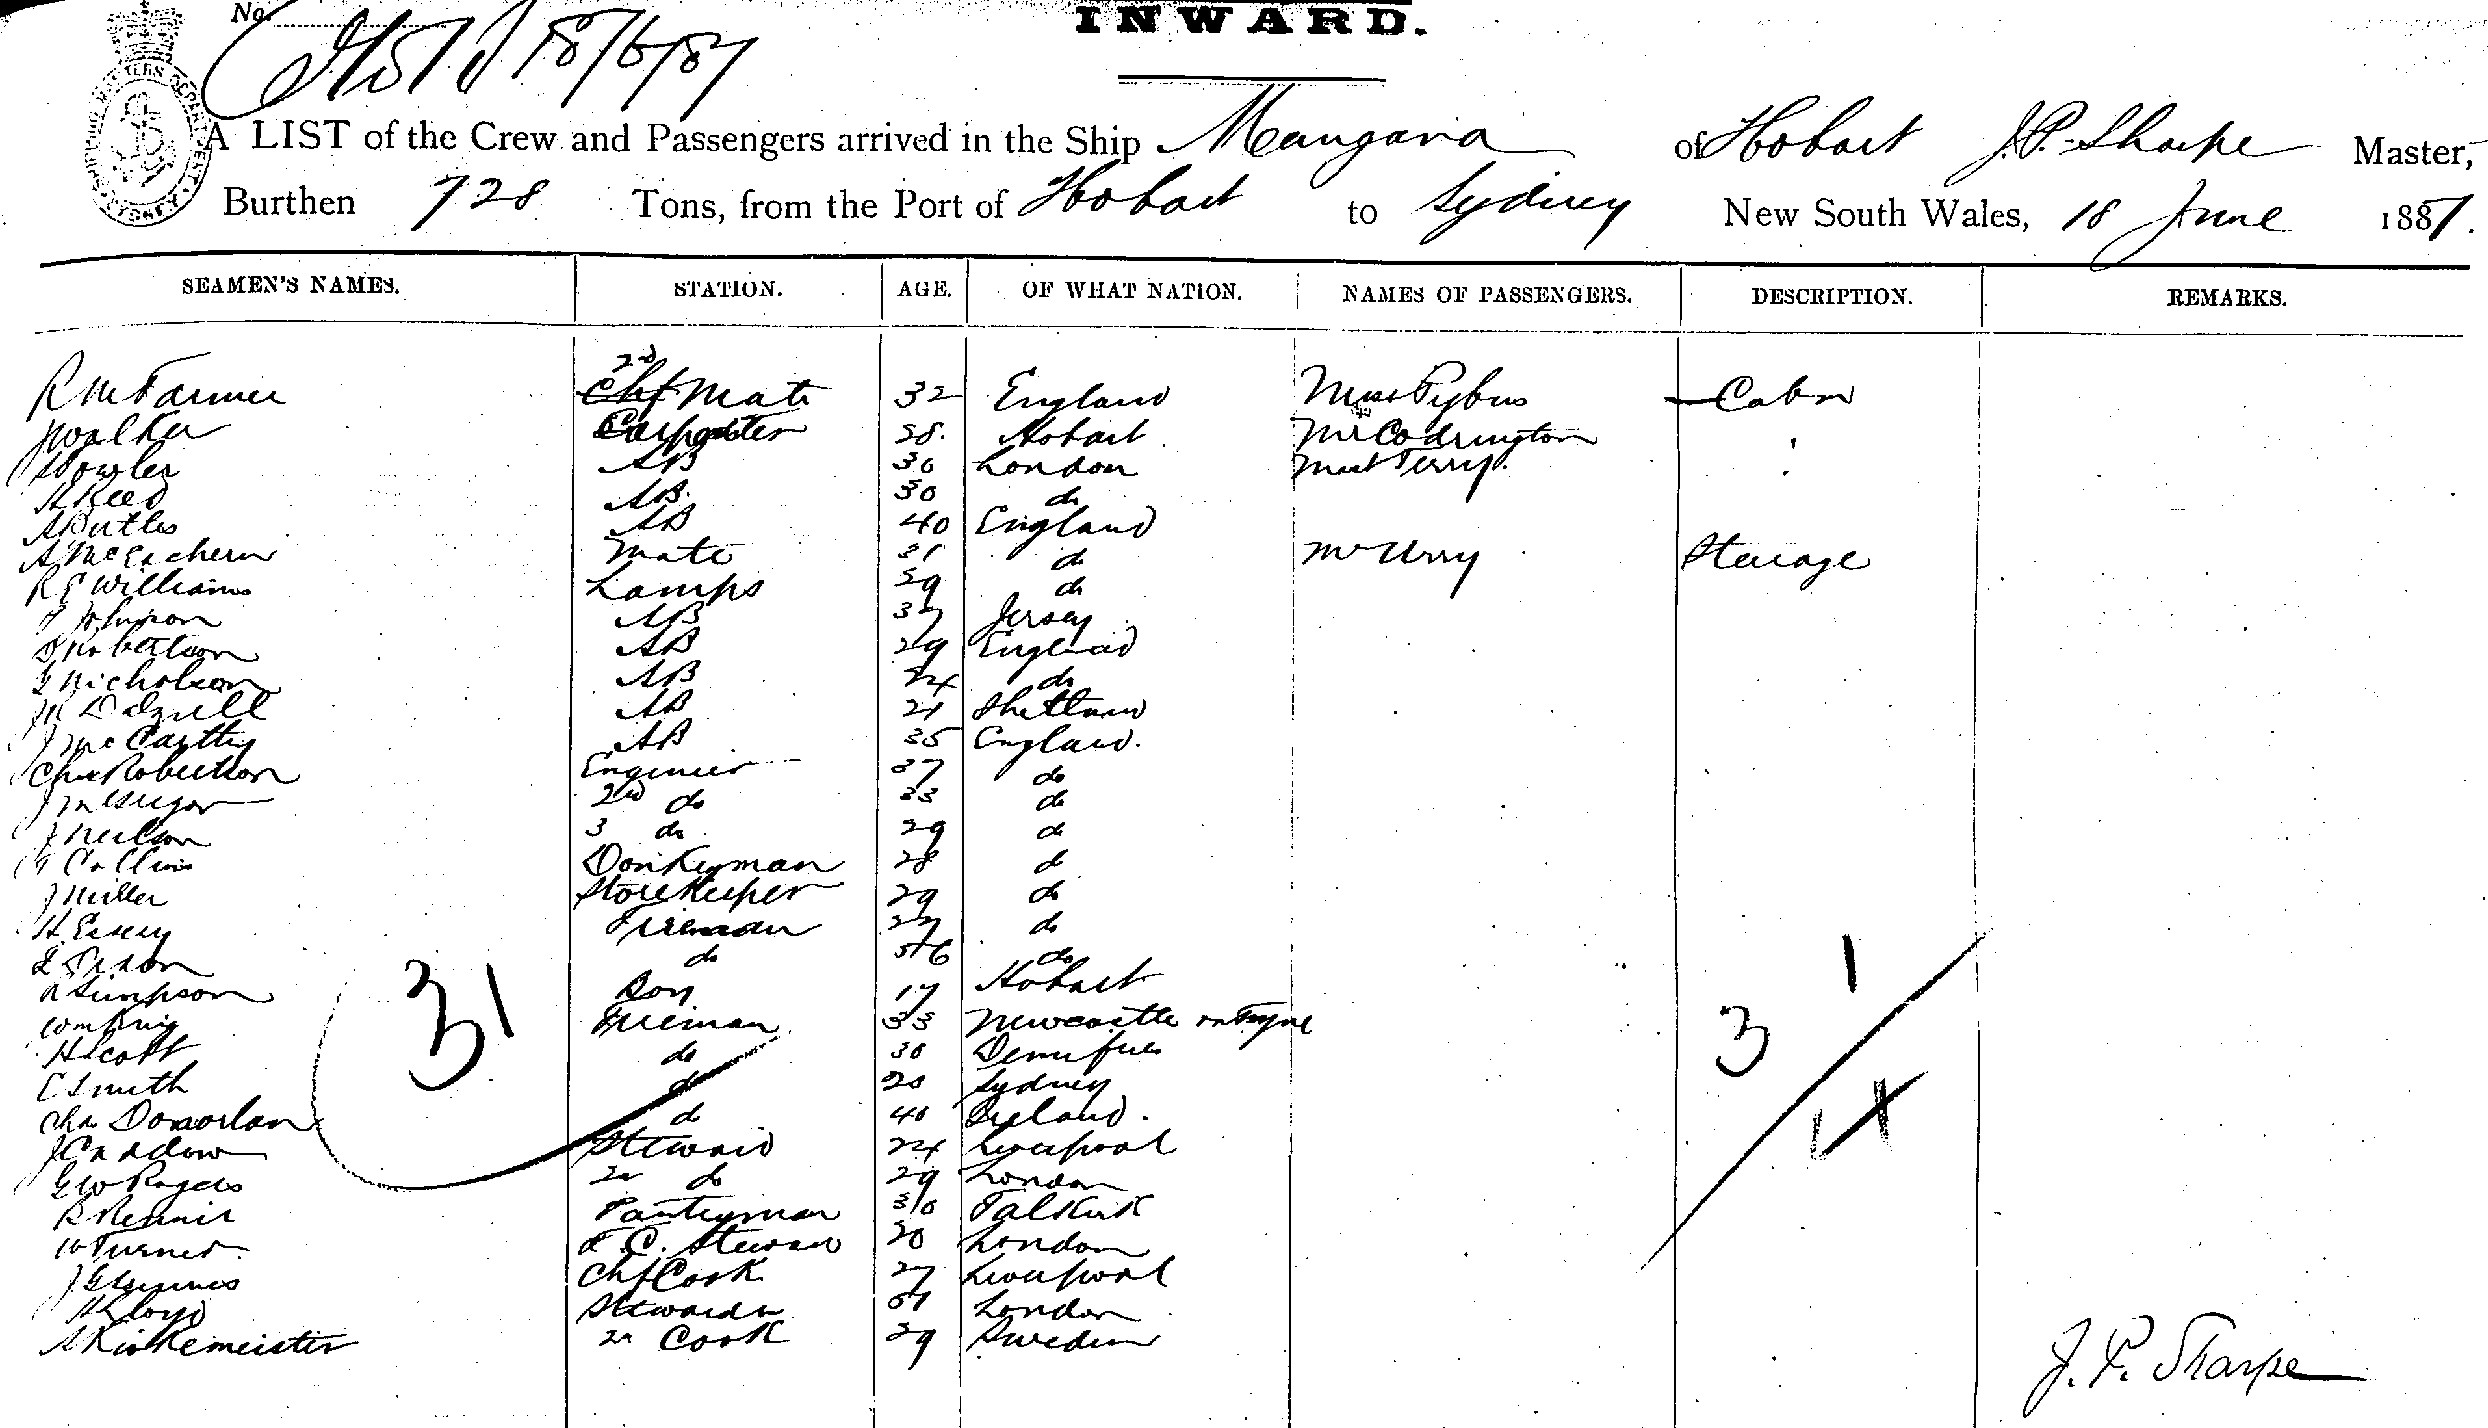 No.
18/6/87
INWARD.
A LIST of the Crew and Passengers arrived in the Ship Mangana of Hobart J.P. Sharpe Master,
Burthen 728 Tons, from the Port of Hobart to Sydney New South Wales, 18 June 1887.
SEAMEN'S NAMES. STATION. AGE. OF WHAT NATION. NAMES OF PASSENGERS. DESCRIPTION. REMARKS.
2nd
R M Farmer Chf Mate 32 England Miss Pybus Cabin
J Walker Carpenter 28 Hobart Mr Codrington "
Fowler AB 30 London Terry "
H Reed AB 30 do
A Butler AB 40 England
A McEachern Mate 31 do Mr Urry Steerage
R E Williams Lamps 29 do
J Johnson AB 37 Jersey
Robertson AB 29 England
G Nicholson AB 24 do
Dalziell AB 21 Shetland
J McCarthy AB 35 England.
Chas Robertson Engineer 37 do
J McGregor 2nd do 33 do
J Neilson 3 do 29 do
Collins Donkeyman 28 do
J Miller Storekeeper 29 do
H. Fireman 27 do
do 56 do
A Simpson Boy 17 Hobart
Wm King Fireman 33 Newcastle on Tyne
H Scott do 30 Dumfries
C Smith do 20 Sydney
Chas Donovan do 40 Ireland.
J Caddow Steward 24 Liverpool
G W Rogers 2nd do 29 London
R Rennie Pantryman 30 Falkirk
W Turner F.C. Steward 20 London
J Chf Cook 27 Liverpool
Lloyd Stewardess 51 London
A Kirkemeister 2nd Cook 29 Sweden
31
3 / 1
J. P. Sharpe